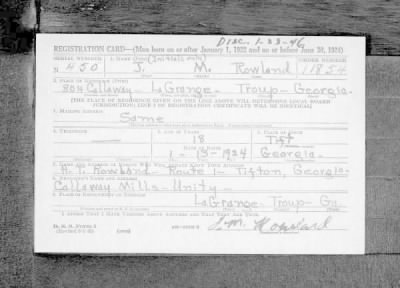 Disc. 1-23-46
REGISTRATION CARD—(Men born on or after January 1, 1922 and on or before June 30, 1924)
SERIAL NUMBER 1. NAME (Print) ORDER NUMBER
N 450 J. (Initials only) M. Rowland 11854
2. PLACE OF RESIDENCE (Print)
804 Callaway - LaGrange - Troup - Georgia.
[THE PLACE OF RESIDENCE GIVEN ON THE LINE ABOVE WILL DETERMINE LOCAL BOARD
JURISDICTION; LINE 2 OF REGISTRATION CERTIFICATE WILL BE IDENTICAL]
3. MAILING ADDRESS
Same
4. TELEPHONE 5. AGE IN YEARS 6. PLACE OF BIRTH
18 Tift
1-13-1924 Georgia
7. NAME AND ADDRESS OF PERSON WHO WILL ALWAYS KNOW YOUR ADDRESS
Rowland - Route 1 - Tifton, Georgia
8. EMPLOYER'S NAME AND ADDRESS
Callaway Mills - Unity
9. PLACE OF EMPLOYMENT OR BUSINESS
LaGrange - Troup - Ga
I AFFIRM THAT I HAVE VERIFIED ABOVE ANSWERS AND THAT THEY ARE TRUE.
D. S. S. Form 1
J. M. Rowland